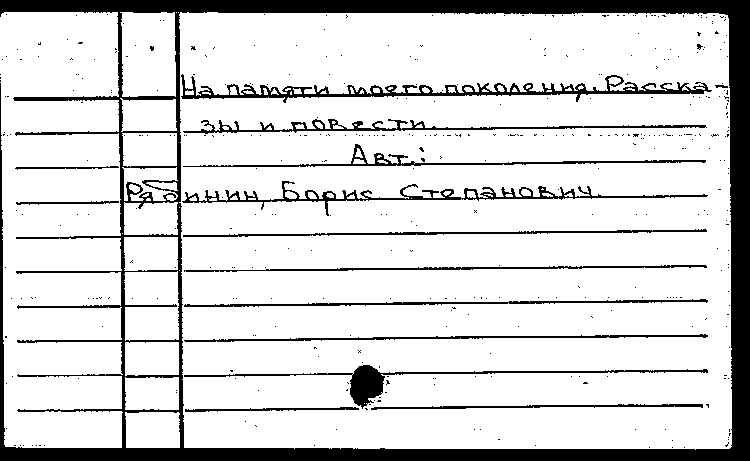 На памяти моего поколения. Расска-
зы и повести.
Авт.:
Рябинин, Борис Степанович.